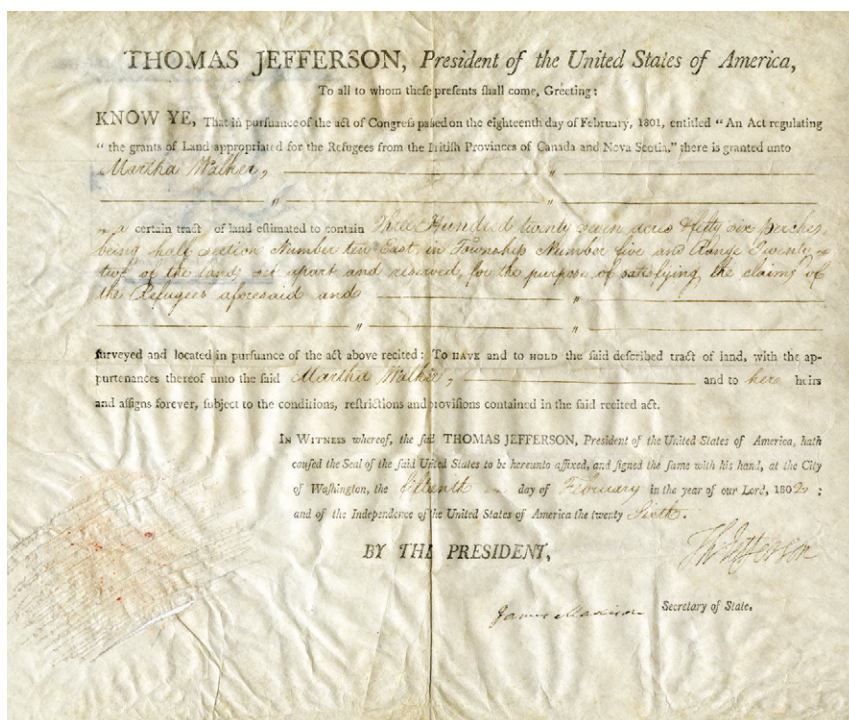 THOMAS JEFFERSON, President of the United States of America,
To all to whom theſe preſents ſhall come, Greeting:
KNOW YE, That in purſuance of the act of Congreſs paſſed on the eighteenth day of February, 1801, entitled "An Act regulating
"the grants of Land appropriated for the Refugees from the Britiſh Provinces of Canada and Nova Scotia," there is granted unto
Martha Walker,
a certain tract of land eſtimated to contain Three Hundred twenty seven acres & fifty six perches,
being half section Number ten East, in Township Number five and Range Twenty
two, of the lands set apart and reserved, for the purpose of satisfying the claims of
the Refugees aforesaid and
ſurveyed and located in purſuance of the act above recited: To HAVE and to HOLD the ſaid deſcribed tract of land, with the ap-
purtenances thereof unto the ſaid Martha Walker, and to here heirs
and aſſigns forever, ſubject to the conditions, reſtrictions and proviſions contained in the ſaid recited act.
IN WITNESS whereof, the ſaid THOMAS JEFFERSON, Preſident of the United States of America, hath
cauſed the Seal of the ſaid United States to be hereunto affixed, and ſigned the ſame with his hand, at the City
of Waſhington, the fifteenth day of February in the year of our Lord, 1802;
and of the Independence of the United States of America the twenty Sixth.
BY THE PRESIDENT,
Th: Jefferson
James Madison Secretary of State.